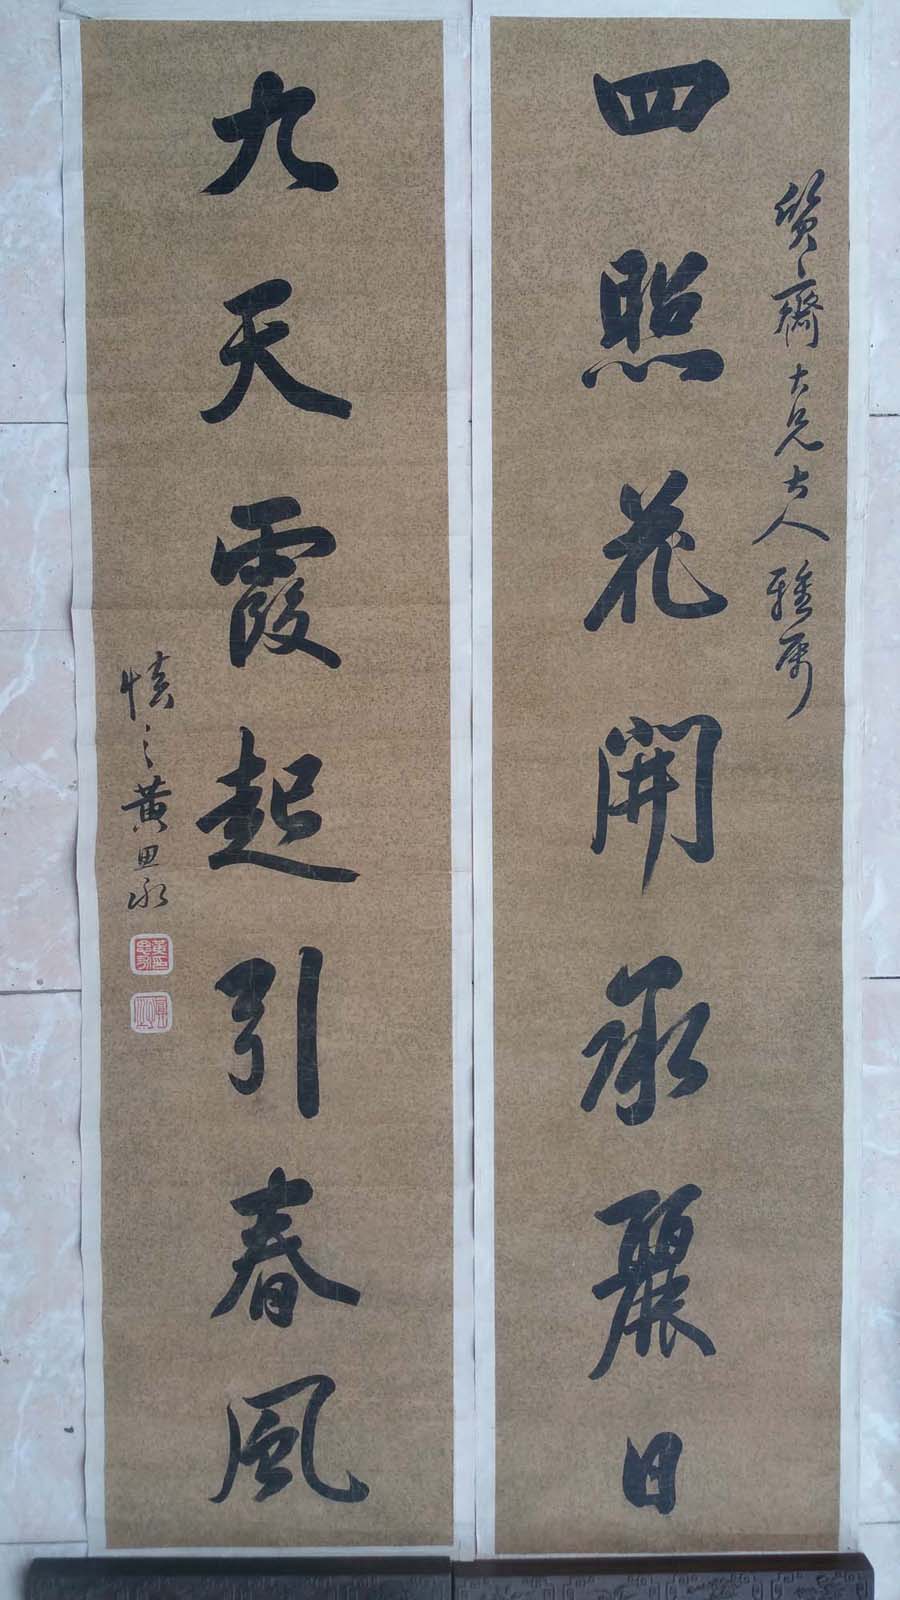 質齋大兄大人雅屬
四照花開承麗日
九天霞起引春風
慎之黃思永
黃思永印